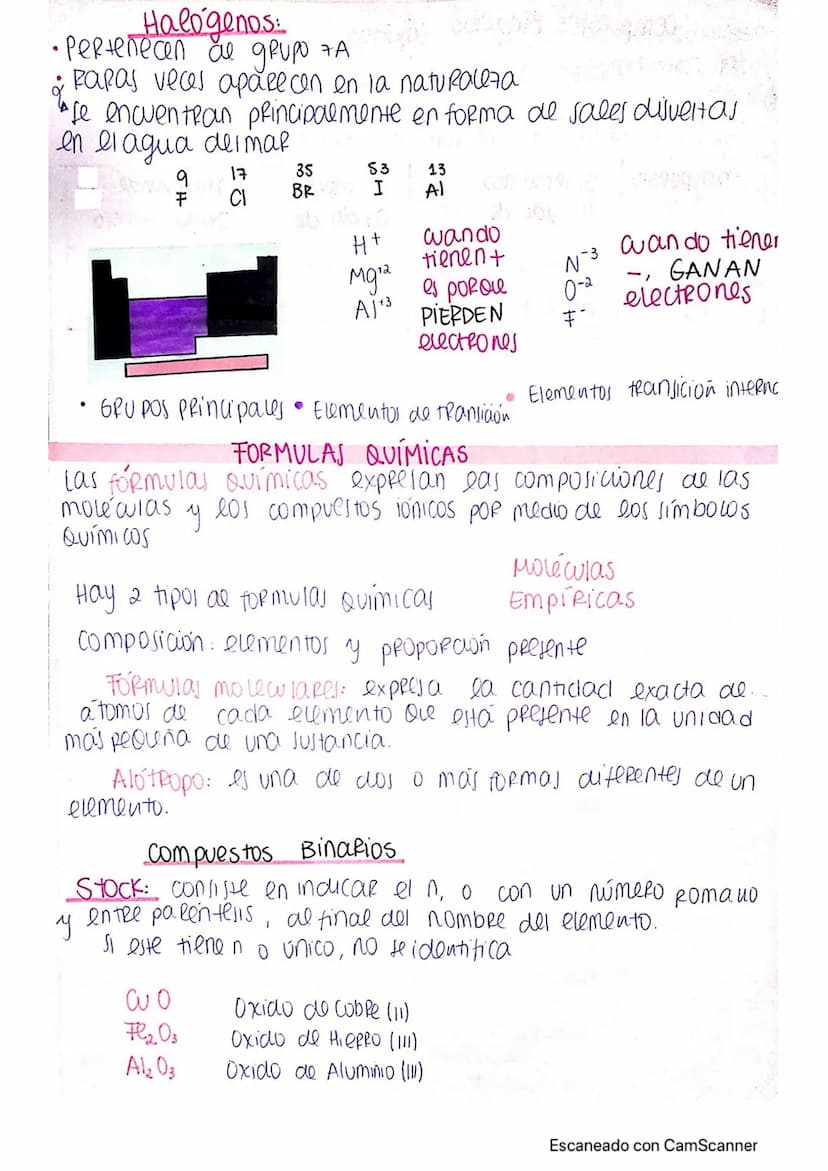 Halógenos:
• Pertenecen al grupo 7A
• Raras veces aparecen en la naturaleza
Se encuentran principalmente en forma de sales disueltas
en el agua del mar
9 17 35 53 13
F Cl BR I Al
H+ cuando
tienen +
Mg+2 es porque
Al+3 PIERDEN
electrones
N-3 cuando tienen
O-2 -, GANAN
F- electrones
• Grupos principales • Elementos de transición • Elementos transición interna
FORMULAS QUÍMICAS
Las fórmulas químicas expresan las composiciones de las
moléculas y los compuestos iónicos por medio de los símbolos
químicos
Hay 2 tipos de formulas químicas
Moléculas
Empíricas
Composición: elementos y proporción presente
Fórmulas moleculares: expresa la cantidad exacta de
átomos de cada elemento que está presente en la unidad
más pequeña de una sustancia.
Alótropo: es una de dos o más formas diferentes de un
elemento.
Compuestos Binarios
Stock: consiste en indicar el n, o con un número romano
y entre paréntesis, al final del nombre del elemento.
Si este tiene n o único, no se identifica
CuO Oxido de Cobre (II)
Fe2O3 Oxido de Hierro (III)
Al2O3 Oxido de Aluminio (III)
Escaneado con CamScanner